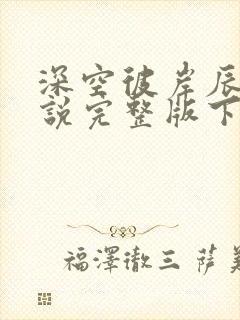 深空彼岸辰
說完整版下
福澤徹三 薩美